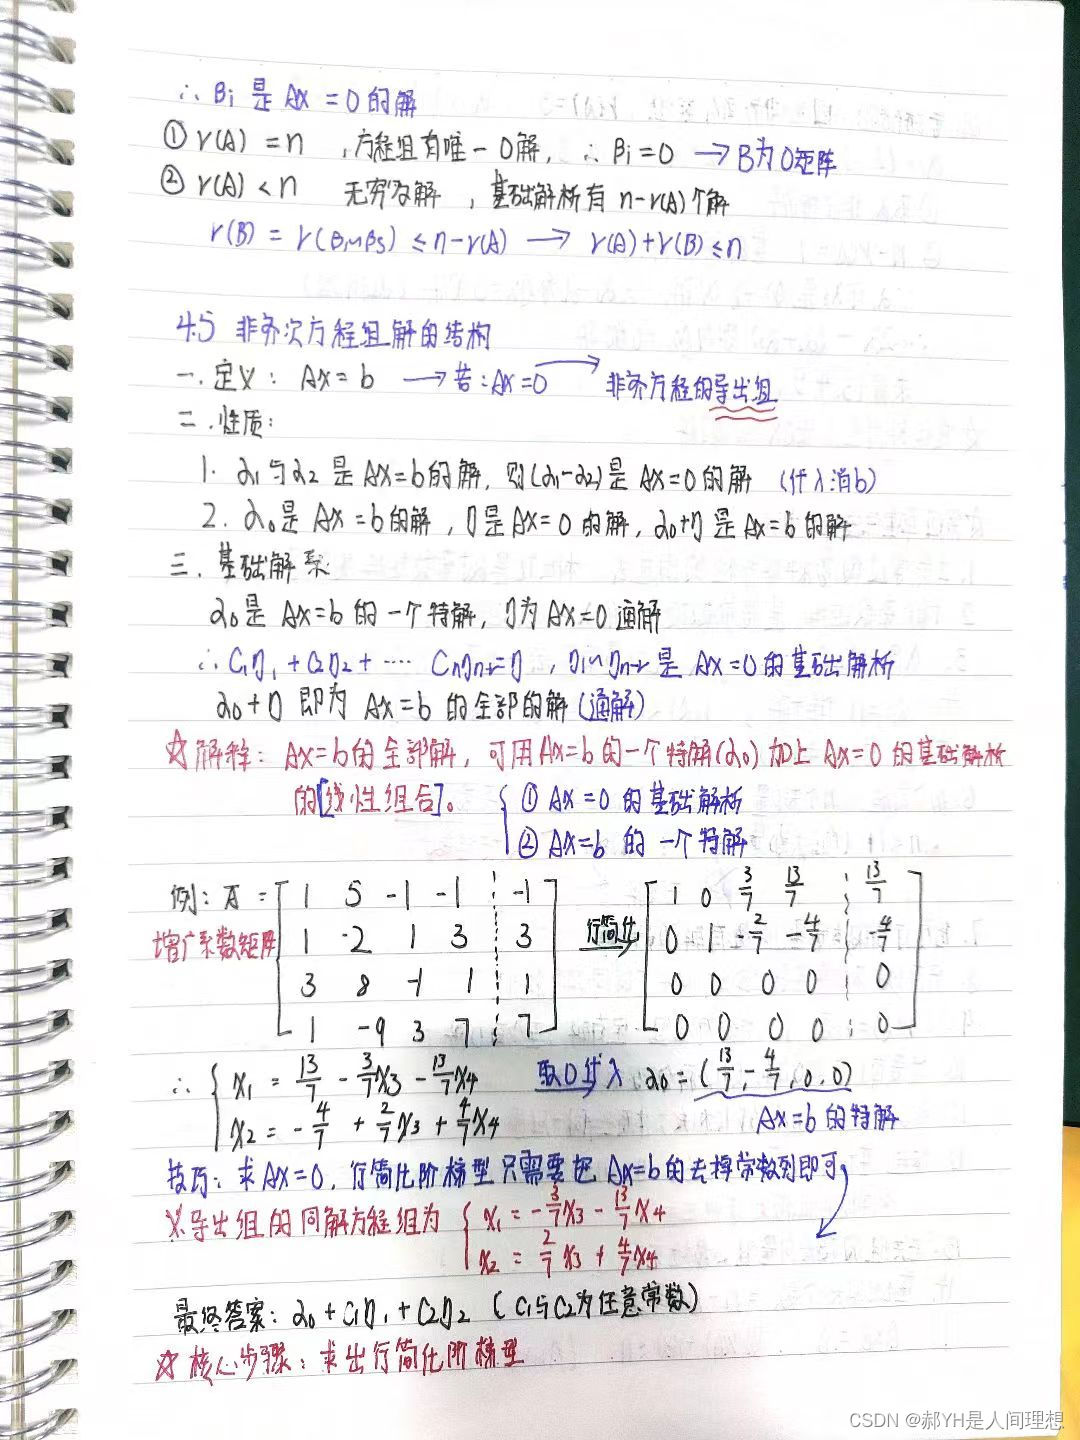 ∴ βi 是 Ax = 0 的解
① r(A) = n ,方程组有唯一0解, ∴ βi = 0 → B为0矩阵
② r(A) < n 无穷多解 , 基础解析有 n-r(A)个解
r(B) = r(β1~βs) ≤ n-r(A) → r(A)+r(B)≤n
4.5 非齐次方程组解的结构
一. 定义: Ax = b → 若: Ax=0 → 非齐方程的导出组
二. 性质:
1. α1与α2 是 Ax=b的解, 则(α1-α2)是 Ax=0的解 (代入消b)
2. α0是 Ax=b的解, η是Ax=0 的解, α0+η 是 Ax=b 的解
三. 基础解系:
α0是 Ax=b 的一个特解, η为 Ax=0 通解
∴ C1η1 + C2η2 + ···· Cnηn-r=η , η1~ηn-r 是 Ax=0的基础解析
α0+η 即为 Ax=b 的全部的解(通解)
☆解释: Ax=b的全部解, 可用Ax=b的一个特解(α0) 加上 Ax=0 的基础解析
的[线性组合]。 { ① Ax=0 的基础解析
② Ax=b 的 一个特解
例: Ā = [ 1 5 -1 -1 ⋮ -1 ] 行简化→ [ 1 0 3/7 13/7 ⋮ 13/7 ]
增广系数矩阵 [ 1 -2 1 3 ⋮ 3 ] [ 0 1 -2/7 -4/7 ⋮ -4/7 ]
[ 3 8 -1 1 ⋮ 1 ] [ 0 0 0 0 ⋮ 0 ]
[ 1 -9 3 7 ⋮ 7 ] [ 0 0 0 0 ⋮ 0 ]
∴ { x1 = 13/7 - 3/7x3 - 13/7x4 取0代入 α0 = (13/7, -4/7, 0, 0)
x2 = -4/7 + 2/7x3 + 4/7x4 Ax=b 的特解
技巧: 求Ax=0, 行简化阶梯型只需要把 Ax=b的去掉常数列即可
※导出组的同解方程组为 { x1 = -3/7x3 - 13/7x4
x2 = 2/7x3 + 4/7x4
最终答案: α0 + C1η1 + C2η2 ( C1与C2为任意常数)
☆ 核心步骤: 求出行简化阶梯型
CSDN @郝YH是人间理想